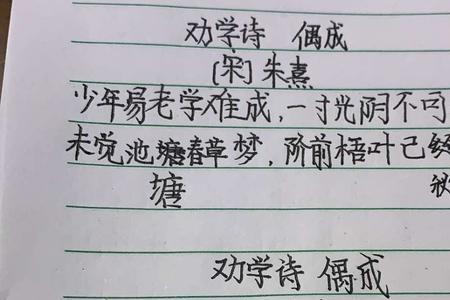 劝学诗 偶成
[宋] 朱熹
少年易老学难成,一寸光阴不可
未觉池塘春草梦,阶前梧叶已
塘
劝学诗 偶成